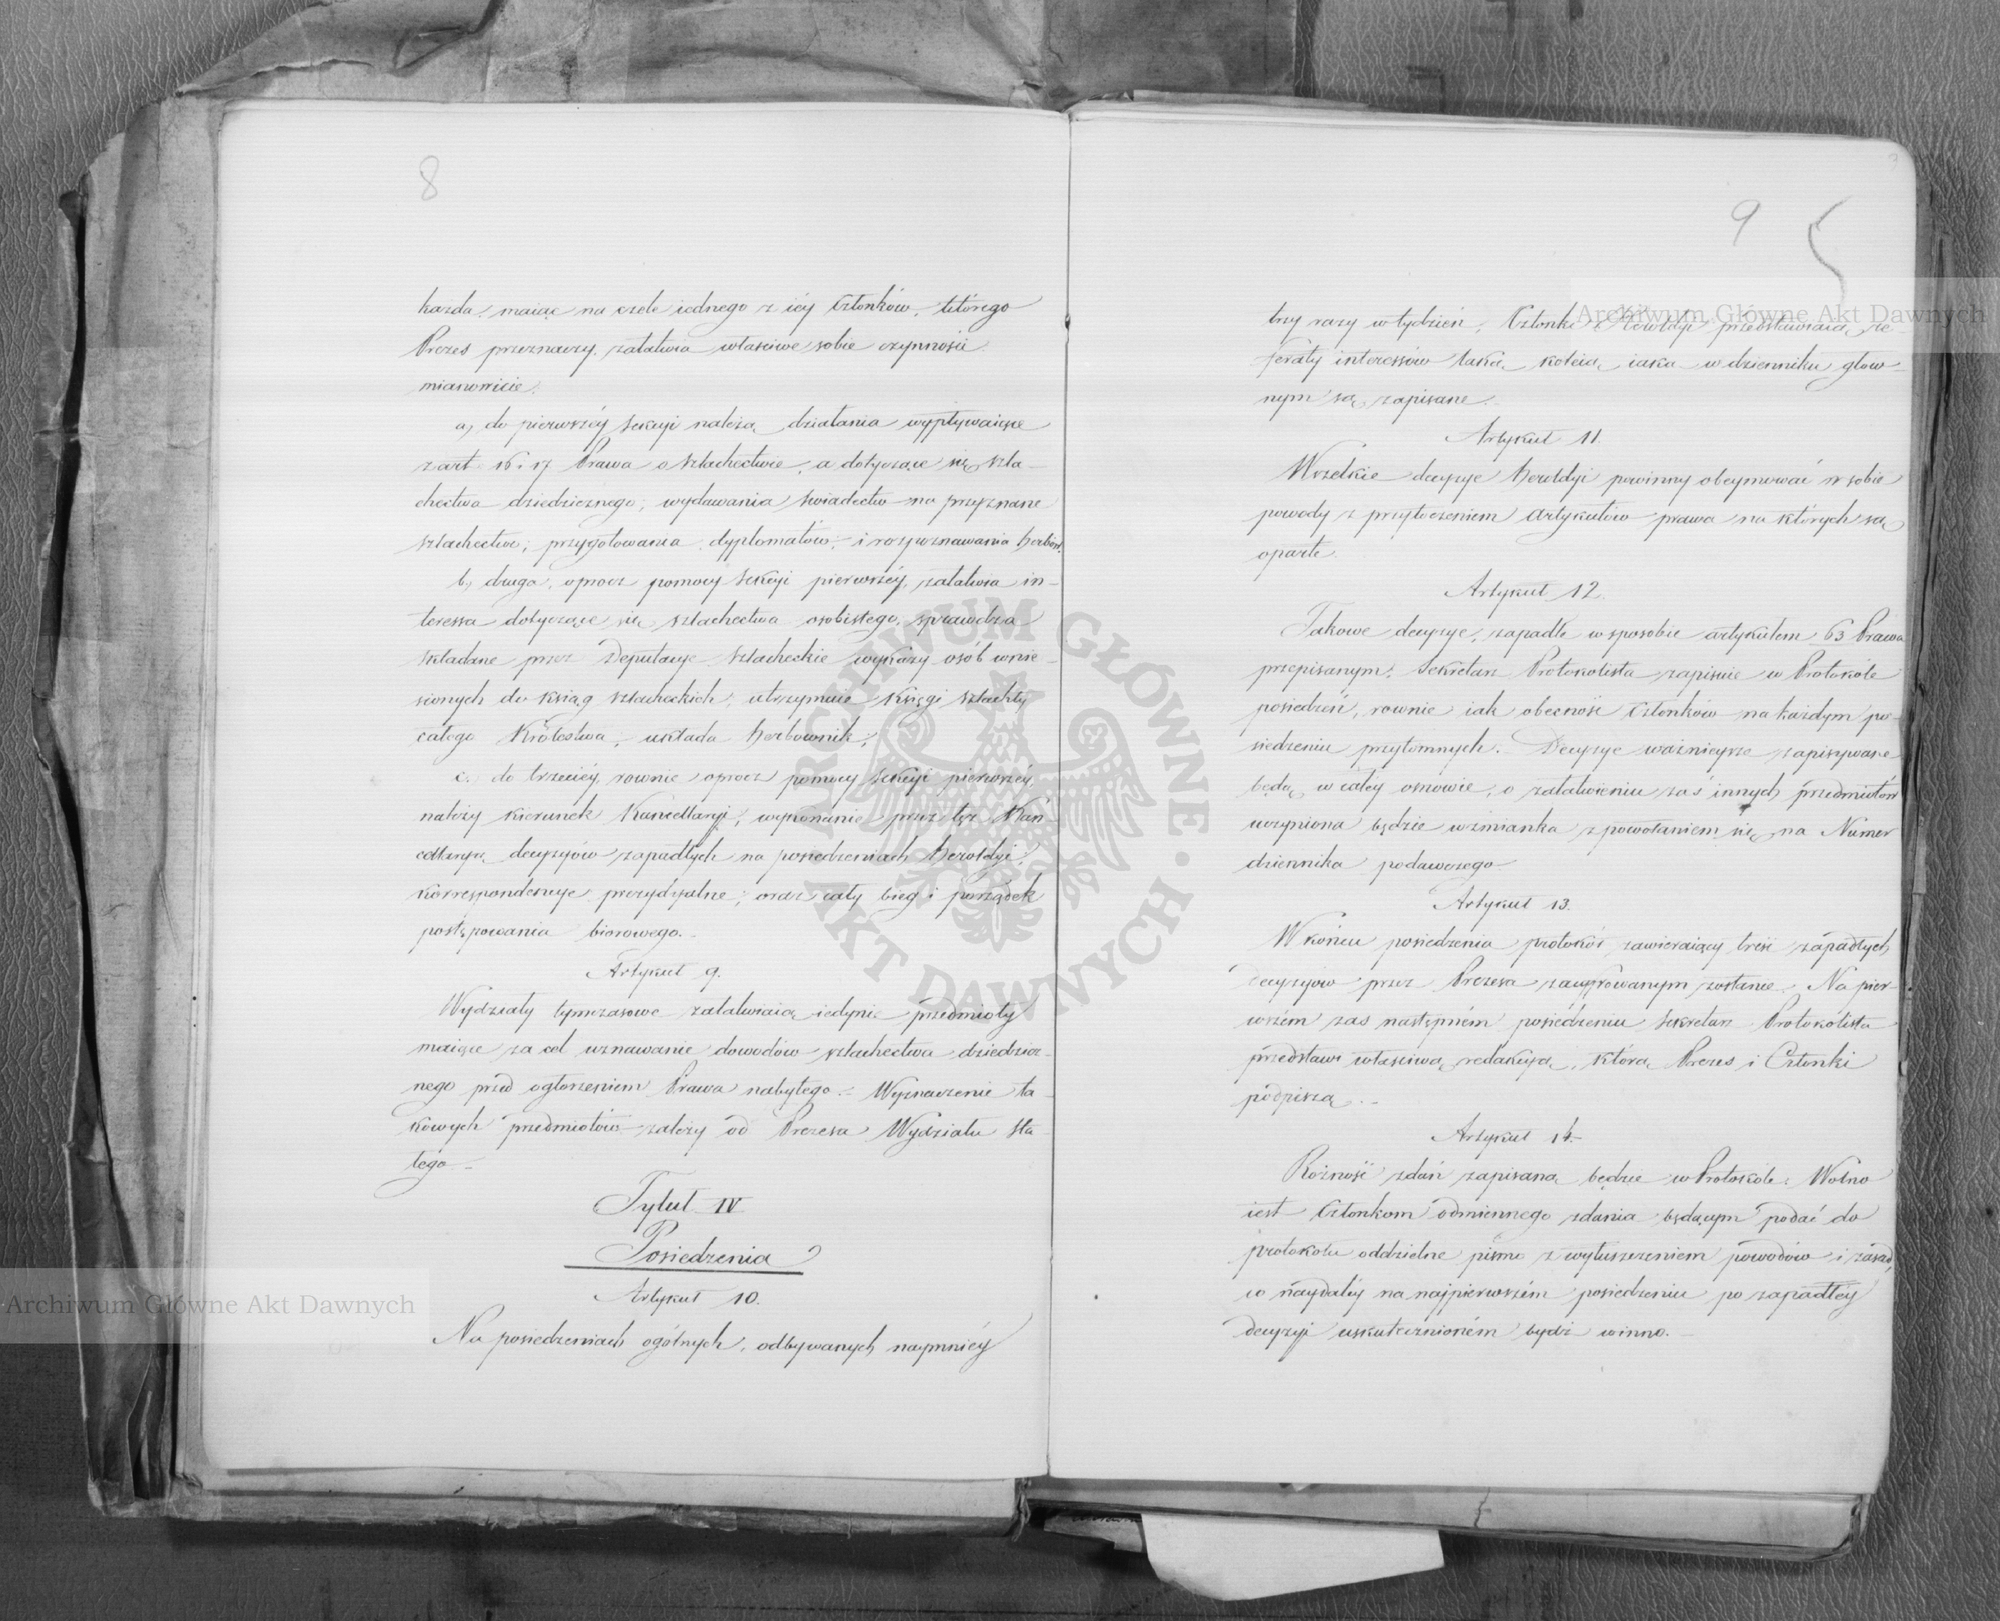 8
każda, maiąc na czele iednego z iéy Członków, którego
Prezes przeznaczy, załatwia właściwe sobie czynności
mianowicie:
a, do pierwszéy Sekcyi należą działania wypływaiące
z art. 16 i 17 Prawa o Szlachectwie, a dotyczące się szla-
chectwa dziedzicznego; wydawania świadectw na przyznane
szlachectwo; przygotowania dyplomatów; i rozpoznawania herbów.
b, druga, oprócz pomocy Sekcyi pierwszéy, załatwia in-
teressa dotyczące się szlachectwa osobistego, sprawdza
składane przez Deputacye Szlacheckie wykazy osób wnie-
sionych do ksiąg szlacheckich; utrzymuie Księgi Szlachty
całego Królestwa, układa herbownik;
c. do trzeciéy, rownie oprocz pomocy Sekcyi pierwszéy,
należy kierunek Kancellaryi, wykonanie przez tęż Kan-
cellaryą decyzyów zapadłych na posiedzeniach Heroldyi,
korrespondencye prezydyalne; oraz cały bieg i porządek
postępowania biorowego.
Artykuł 9.
Wydziały tymczasowe załatwiaią iedynie przedmioty
maiące za cel uznawanie dowodów szlachectwa dziedzicz-
nego przed ogłoszeniem Prawa nabytego. Wyznaczenie ta-
kowych przedmiotów zależy od Prezesa Wydziału Sta-
łego
Tytuł IV
Posiedzenia
Artykuł 10.
Na posiedzeniach ogólnych, odbywanych naymniéy
9
trzy razy w tydzień, Członki Heroldyi przedstawiaią re-
feraty interessów taką koleią, iaką w dzienniku głow-
nym są zapisane.
Artykuł 11.
Wszelkie decyzye Heroldyi powinny obeymować w sobie
powody z przytoczeniem Artykułów prawa na których są
oparte.
Artykuł 12.
Takowe decyzye, zapadłe w sposobie artykułem 63 Prawa
przepisanym, Sekretarz Protokolista zapisuie w Protokóle
posiedzeń, rownie iak obecność Członków na każdym po-
siedzeniu przytomnych. Decyzye ważnieysze zapisywane
będą w całéy osnowie, o załatwieniu zaś innych przedmiotów
uczyniona będzie wzmianka z powołaniem się na Numer
dziennika podawczego
Artykuł 13.
W końcu posiedzenia protokół zawieraiący treść zapadłych
decyzyów przez Prezesa zacyfrowanym zostanie. Na pier-
wszém zaś następném posiedzeniu Sekretarz Protokólista
przedstawi właściwą redakcyą, którą Prezes i Członki
podpiszą.
Artykuł 14.
Rożność zdań zapisaną będzie w Protokóle. Wolno
iest Członkom odmiennego zdania będącym podać do
protokołu oddzielne pismo z wyłuszczeniem powodów i zasad,
co naydaléy na najpierwszém posiedzeniu po zapadłéy
decyzyi uskutecznioném bydź winno.
Archiwum Główne Akt Dawnych
Archiwum Główne Akt Dawnych
ARCHIWUM GŁÓWNE AKT DAWNYCH